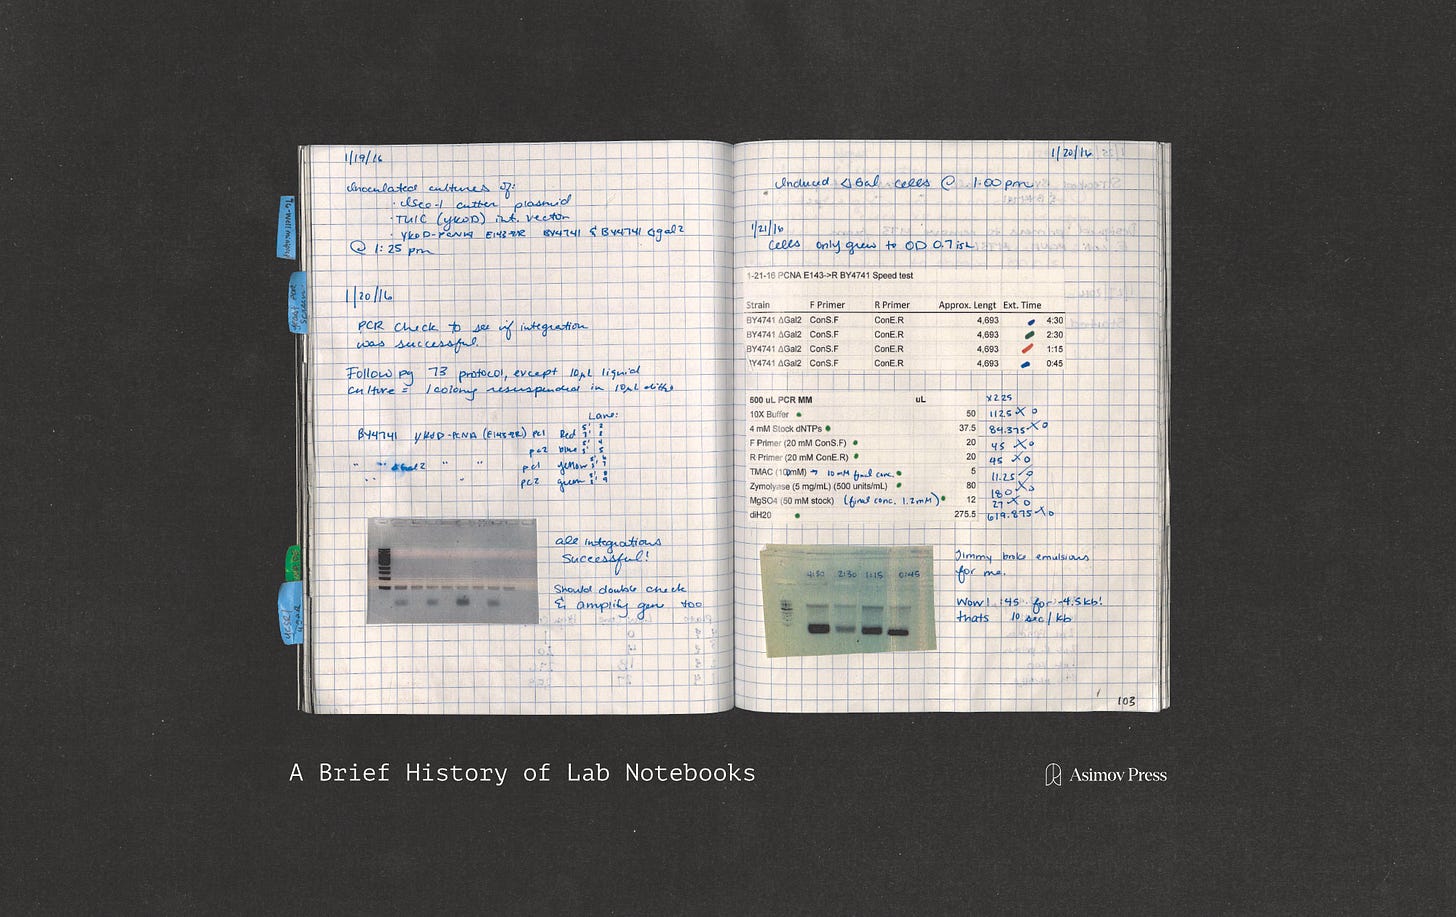 1/19/16
Inoculated cultures of:
· ISce-1 cutter plasmid
· TUIC (YKOD) int. vector
· YKOD-PCNA E143→R BY4741 & BY4741 ΔGal2
@ 1:25 pm
1/20/16
PCR Check to see if integration
was successful.
Follow pg 73 protocol, except 10µL liquid
culture = 1 colony resuspended in 10µL
Lane:
BY4741 YKOD-PCNA (E143→R) pc1 Red 5' 2
3' 3
pc2 blue 5' 4
3' 5
" " ΔGal2 " " pc1 yellow 5' 6
3' 7
" " " pc2 green 5' 8
3' 9
all integrations
Successful!
Should double check
& amplify gen too
1/20/16
Induced ΔGal cells @ 1:00 pm
1/21/16
Cells only grew to OD 0.7ish
1-21-16 PCNA E143->R BY4741 Speed test
Strain F Primer R Primer Approx. Lengt Ext. Time
BY4741 ΔGal2 ConS.F ConE.R 4,693 4:30
BY4741 ΔGal2 ConS.F ConE.R 4,693 2:30
BY4741 ΔGal2 ConS.F ConE.R 4,693 1:15
BY4741 ΔGal2 ConS.F ConE.R 4,693 0:45
500 uL PCR MM uL x2.25
10X Buffer 50 112.5 X
4 mM Stock dNTPs 37.5 84.375 X
F Primer (20 mM ConS.F) 20 45 X
R Primer (20 mM ConE.R) 20 45 X
TMAC (100mM) → 10 mM final conc. 5 11.25
Zymolyase (5 mg/mL) (500 units/mL) 80 180 X
MgSO4 (50 mM stock) (final conc. 1.2mM) 12 27 X
diH20 275.5 619.875 X
4:30 2:30 1:15 0:45
Jimmy broke emulsions
for me.
Wow! :45 for ~4.5kb!
thats 10 sec/kb
103
A Brief History of Lab Notebooks
Asimov Press